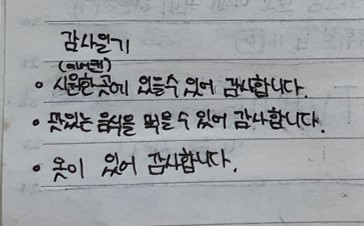 감사일기
(에어컨)
• 시원한 곳에 있을 수 있어 감사합니다.
• 맛있는 음식을 먹을 수 있어 감사합니다.
• 옷이 있어 감사합니다.